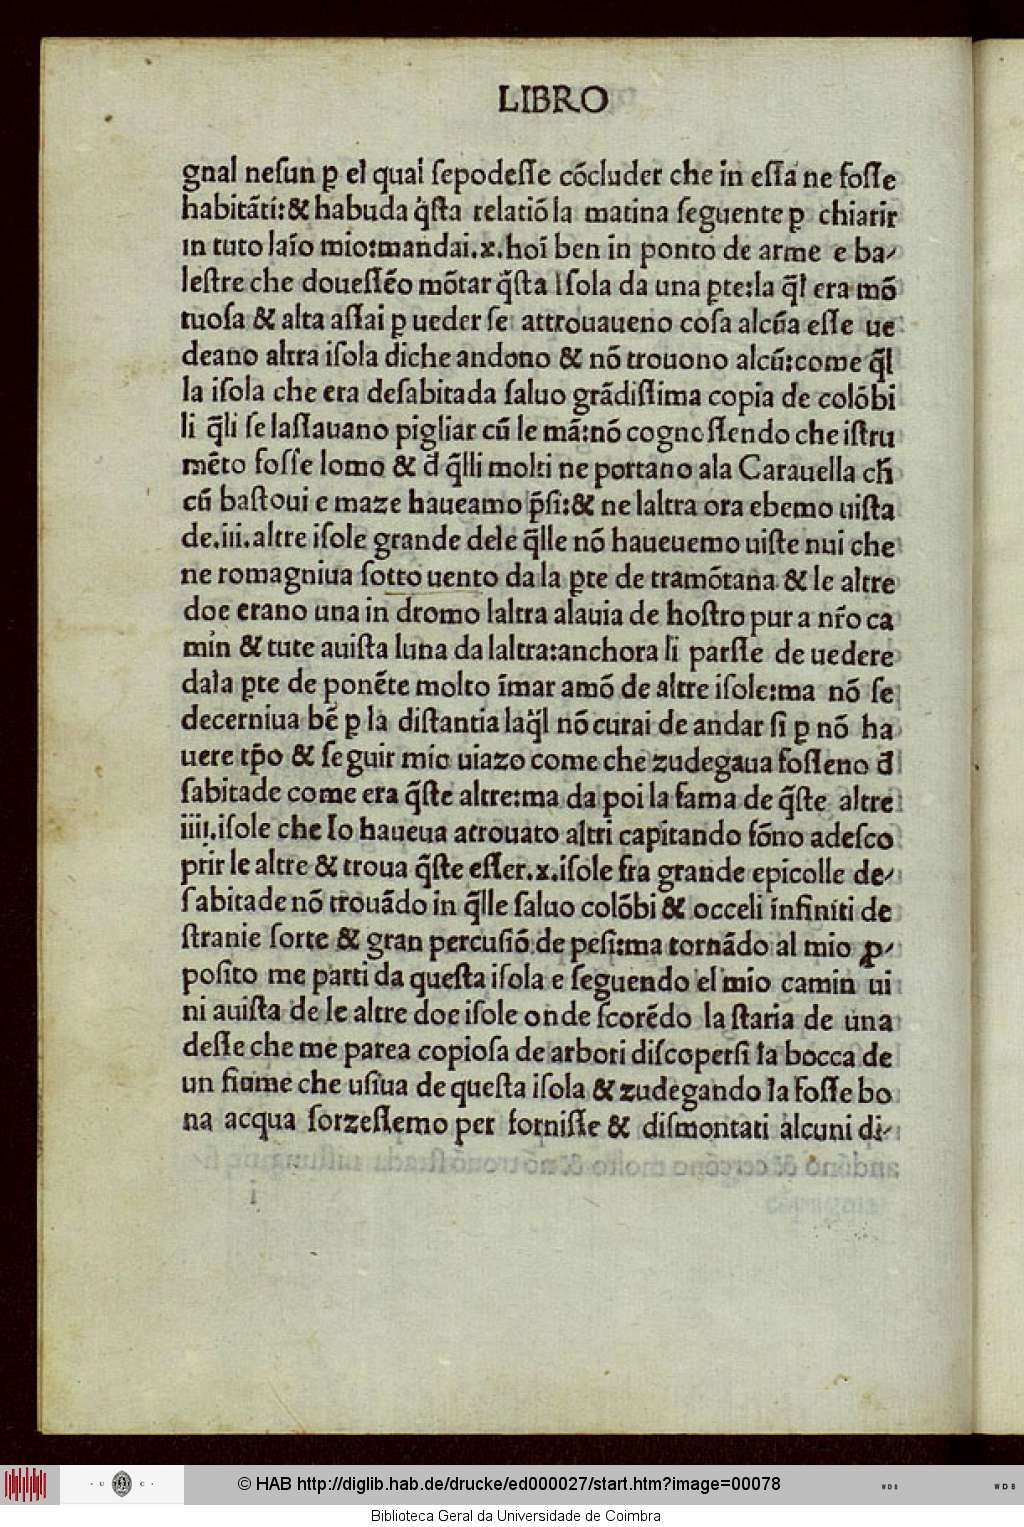 LIBRO
gnal neſun ꝑ el qual ſepodeſſe cōcluder che in eſſa ne foſſe
habitāti:& habuda q̃ſta relatiō la matina ſeguente ꝑ chiarir
in tuto laīo mio:mandai.x.hoī ben in ponto de arme e ba⸗
leſtre che doueſſēo mōtar q̃ſta Iſola da una ꝑte:la q̃l era mō
tuoſa & alta aſſai ꝑ ueder ſe attrouaueno coſa alcūa eſſe ue
deano altra iſola diche andono & nō trouono alcū:come q̃l
la iſola che era deſabitada ſaluo grādiſſima copia de colōbi
li q̃li ſe laſſauano pigliar cū le mā:nō cognoſſendo che iſtru
mēto foſſe lomo & đ q̃lli molti ne portano ala Carauella ch̄
cū baſtoui e maze haueamo p̄ſi:& ne laltra ora ebemo uiſta
de.iii.altre iſole grande dele q̃lle nō haueuemo uiſte nui che
ne romagniua ſotto uento da la ꝑte de tramōtana & le altre
doe erano una in dromo laltra alauia de hoſtro pur a nr̄o ca
min & tute auiſta luna da laltra:anchora li parſſe de uedere
dala ꝑte de ponēte molto īmar amō de altre iſole:ma nō ſe
decerniua bē ꝑ la diſtantia laq̃l nō curai de andar ſi ꝑ nō ha
uere tp̄o & ſeguir mio uiazo come che zudegaua foſſeno đ
ſabitade come era q̃ſte altre:ma da poi la fama de q̃ſte altre
iiii.iſole che Io haueua atrouato altri capitando fōno adeſco
prir le altre & troua q̃ſte eſſer.x.iſole fra grande epicolle de⸗
ſabitade nō trouādo in q̃lle ſaluo colōbi & occeli infiniti de
ſtranie ſorte & gran percuſiō de peſi:ma tornādo al mio ꝓ⸗
poſito me parti da queſta iſola e ſeguendo el mio camin ui
ni auiſta de le altre doe iſole onde ſcorēdo la ſtaria de una
deſſe che me parea copioſa de arbori diſcoperſi la bocca de
un fiume che uſiua de queſta iſola & zudegando la foſſe bo
na acqua ſorzeſſemo per forniſſe & diſmontati alcuni di⸗
i
© HAB http://diglib.hab.de/drucke/ed000027/start.htm?image=00078
Biblioteca Geral da Universidade de Coimbra